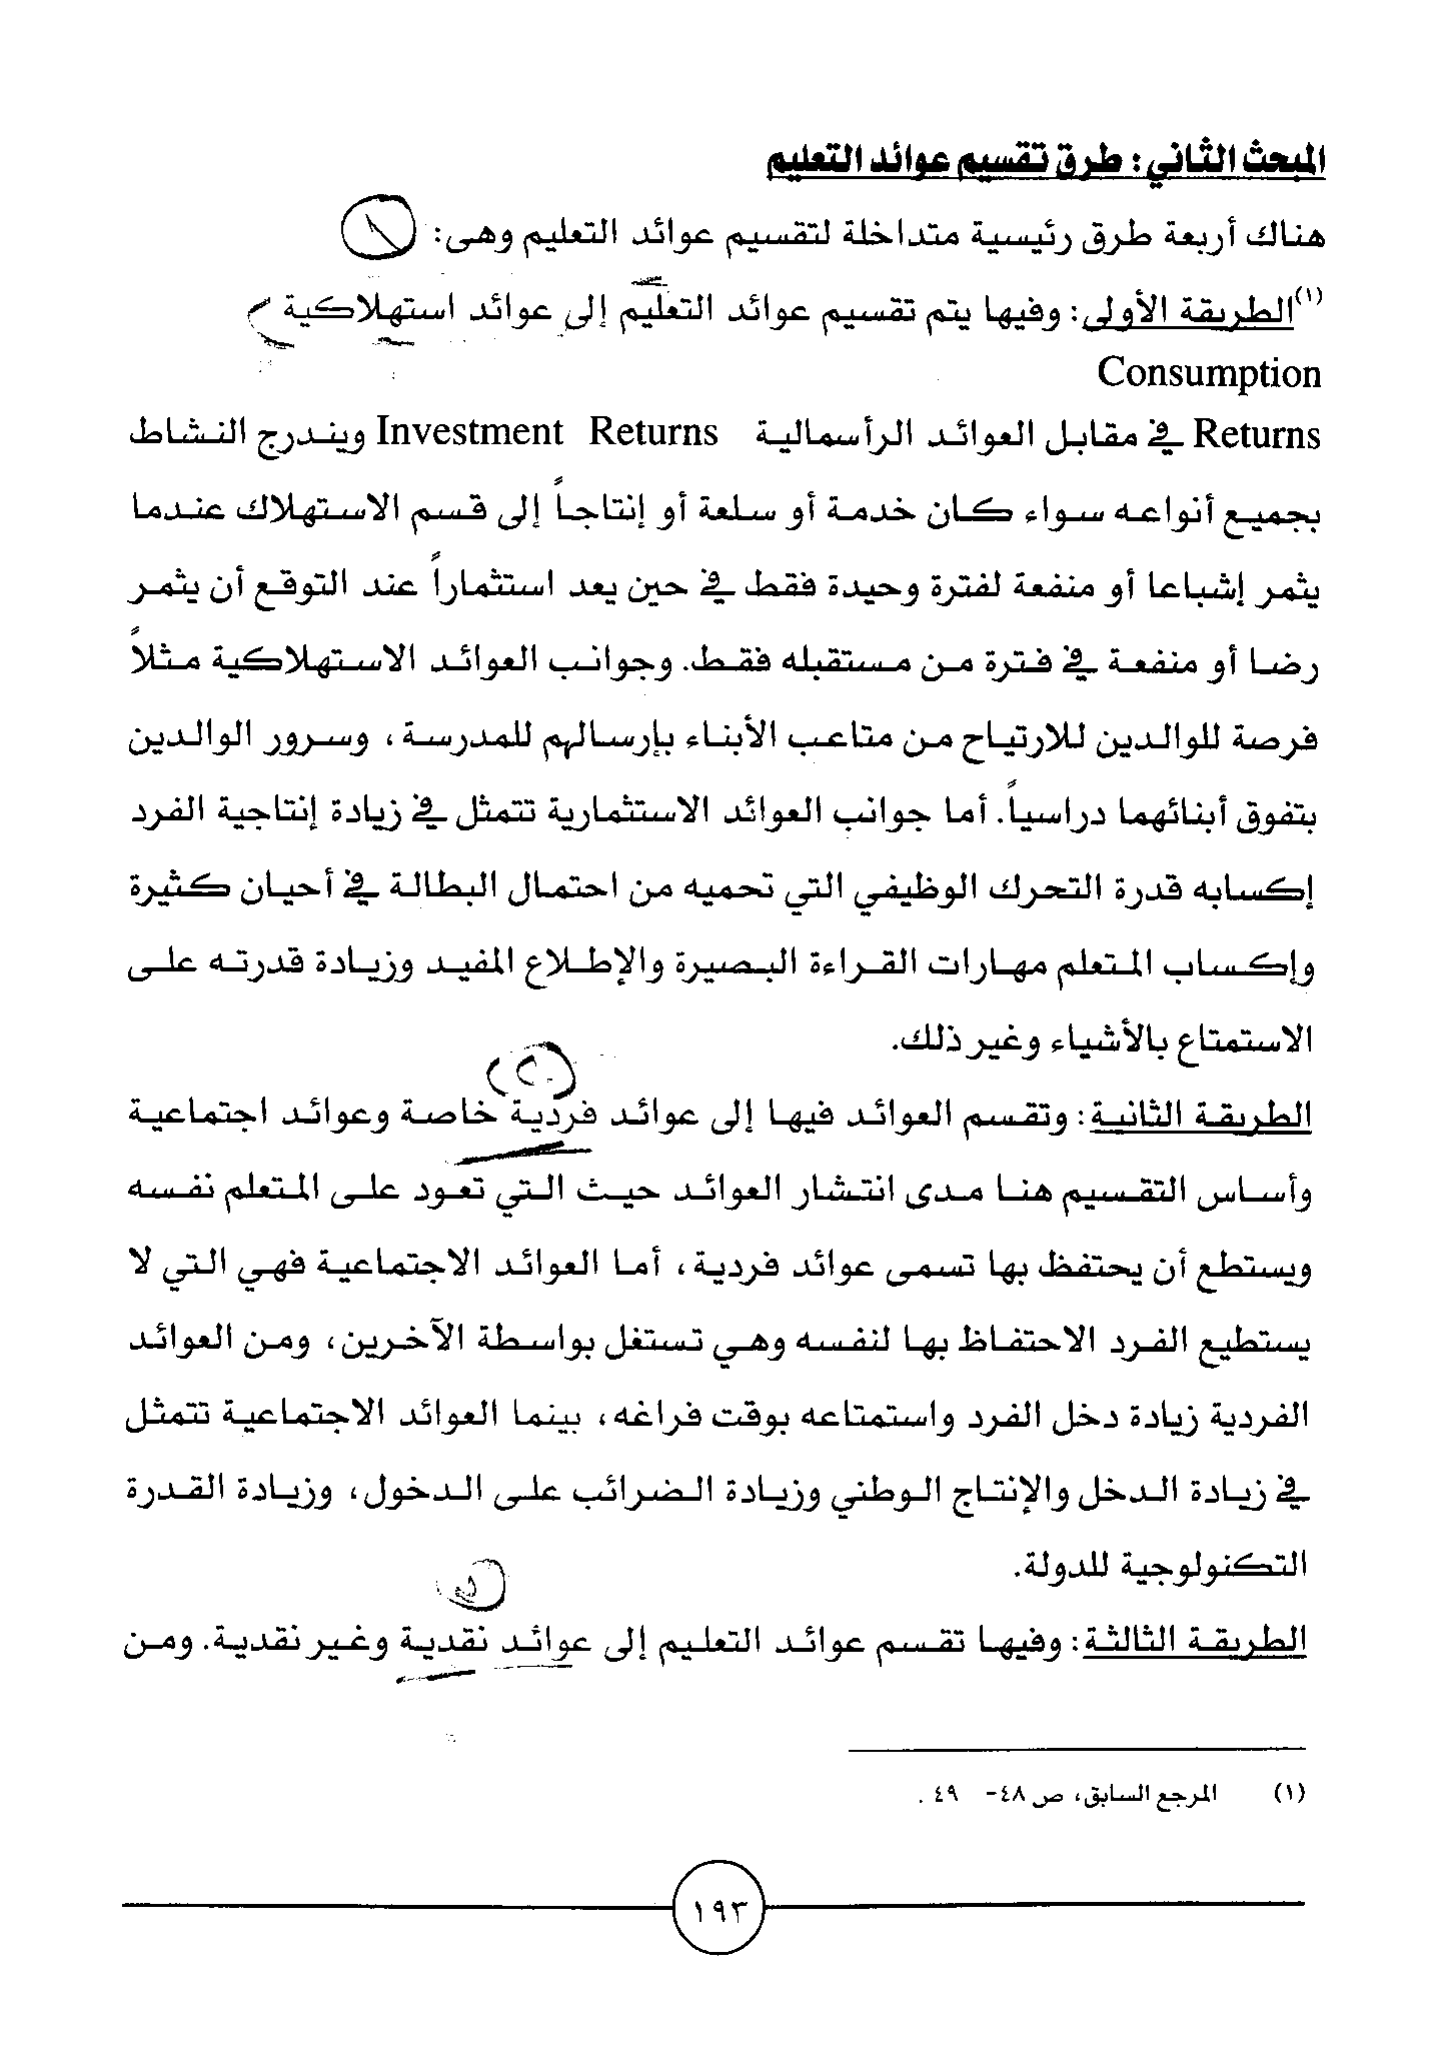 المبحث الثاني: طرق تقسيم عوائد التعليم
هناك أربعة طرق رئيسية متداخلة لتقسيم عوائد التعليم وهى: ١
(١)الطريقة الأولى: وفيها يتم تقسيم عوائد التعليم إلى عوائد استهلاكية
Consumption
Returns في مقابل العوائد الرأسمالية Investment Returns ويندرج النشاط
بجميع أنواعه سواء كان خدمة أو سلعة أو إنتاجاً إلى قسم الاستهلاك عندما
يثمر إشباعا أو منفعة لفترة وحيدة فقط في حين يعد استثماراً عند التوقع أن يثمر
رضا أو منفعة في فترة من مستقبله فقط. وجوانب العوائد الاستهلاكية مثلاً
فرصة للوالدين للارتياح من متاعب الأبناء بإرسالهم للمدرسة، وسرور الوالدين
بتفوق أبنائهما دراسياً. أما جوانب العوائد الاستثمارية تتمثل في زيادة إنتاجية الفرد
إكسابه قدرة التحرك الوظيفي التي تحميه من احتمال البطالة في أحيان كثيرة
وإكساب المتعلم مهارات القراءة البصيرة والإطلاع المفيد وزيادة قدرته على
الاستمتاع بالأشياء وغير ذلك.
(٢)
الطريقة الثانية: وتقسم العوائد فيها إلى عوائد فردية خاصة وعوائد اجتماعية
وأساس التقسيم هنا مدى انتشار العوائد حيث التي تعود على المتعلم نفسه
ويستطع أن يحتفظ بها تسمى عوائد فردية، أما العوائد الاجتماعية فهي التي لا
يستطيع الفرد الاحتفاظ بها لنفسه وهي تستغل بواسطة الآخرين، ومن العوائد
الفردية زيادة دخل الفرد واستمتاعه بوقت فراغه، بينما العوائد الاجتماعية تتمثل
في زيادة الدخل والإنتاج الوطني وزيادة الضرائب على الدخول، وزيادة القدرة
التكنولوجية للدولة.
الطريقة الثالثة: وفيها تقسم عوائد التعليم إلى عوائد نقدية وغير نقدية. ومن
(١) المرجع السابق، ص ٤٨- ٤٩ .
١٩٣